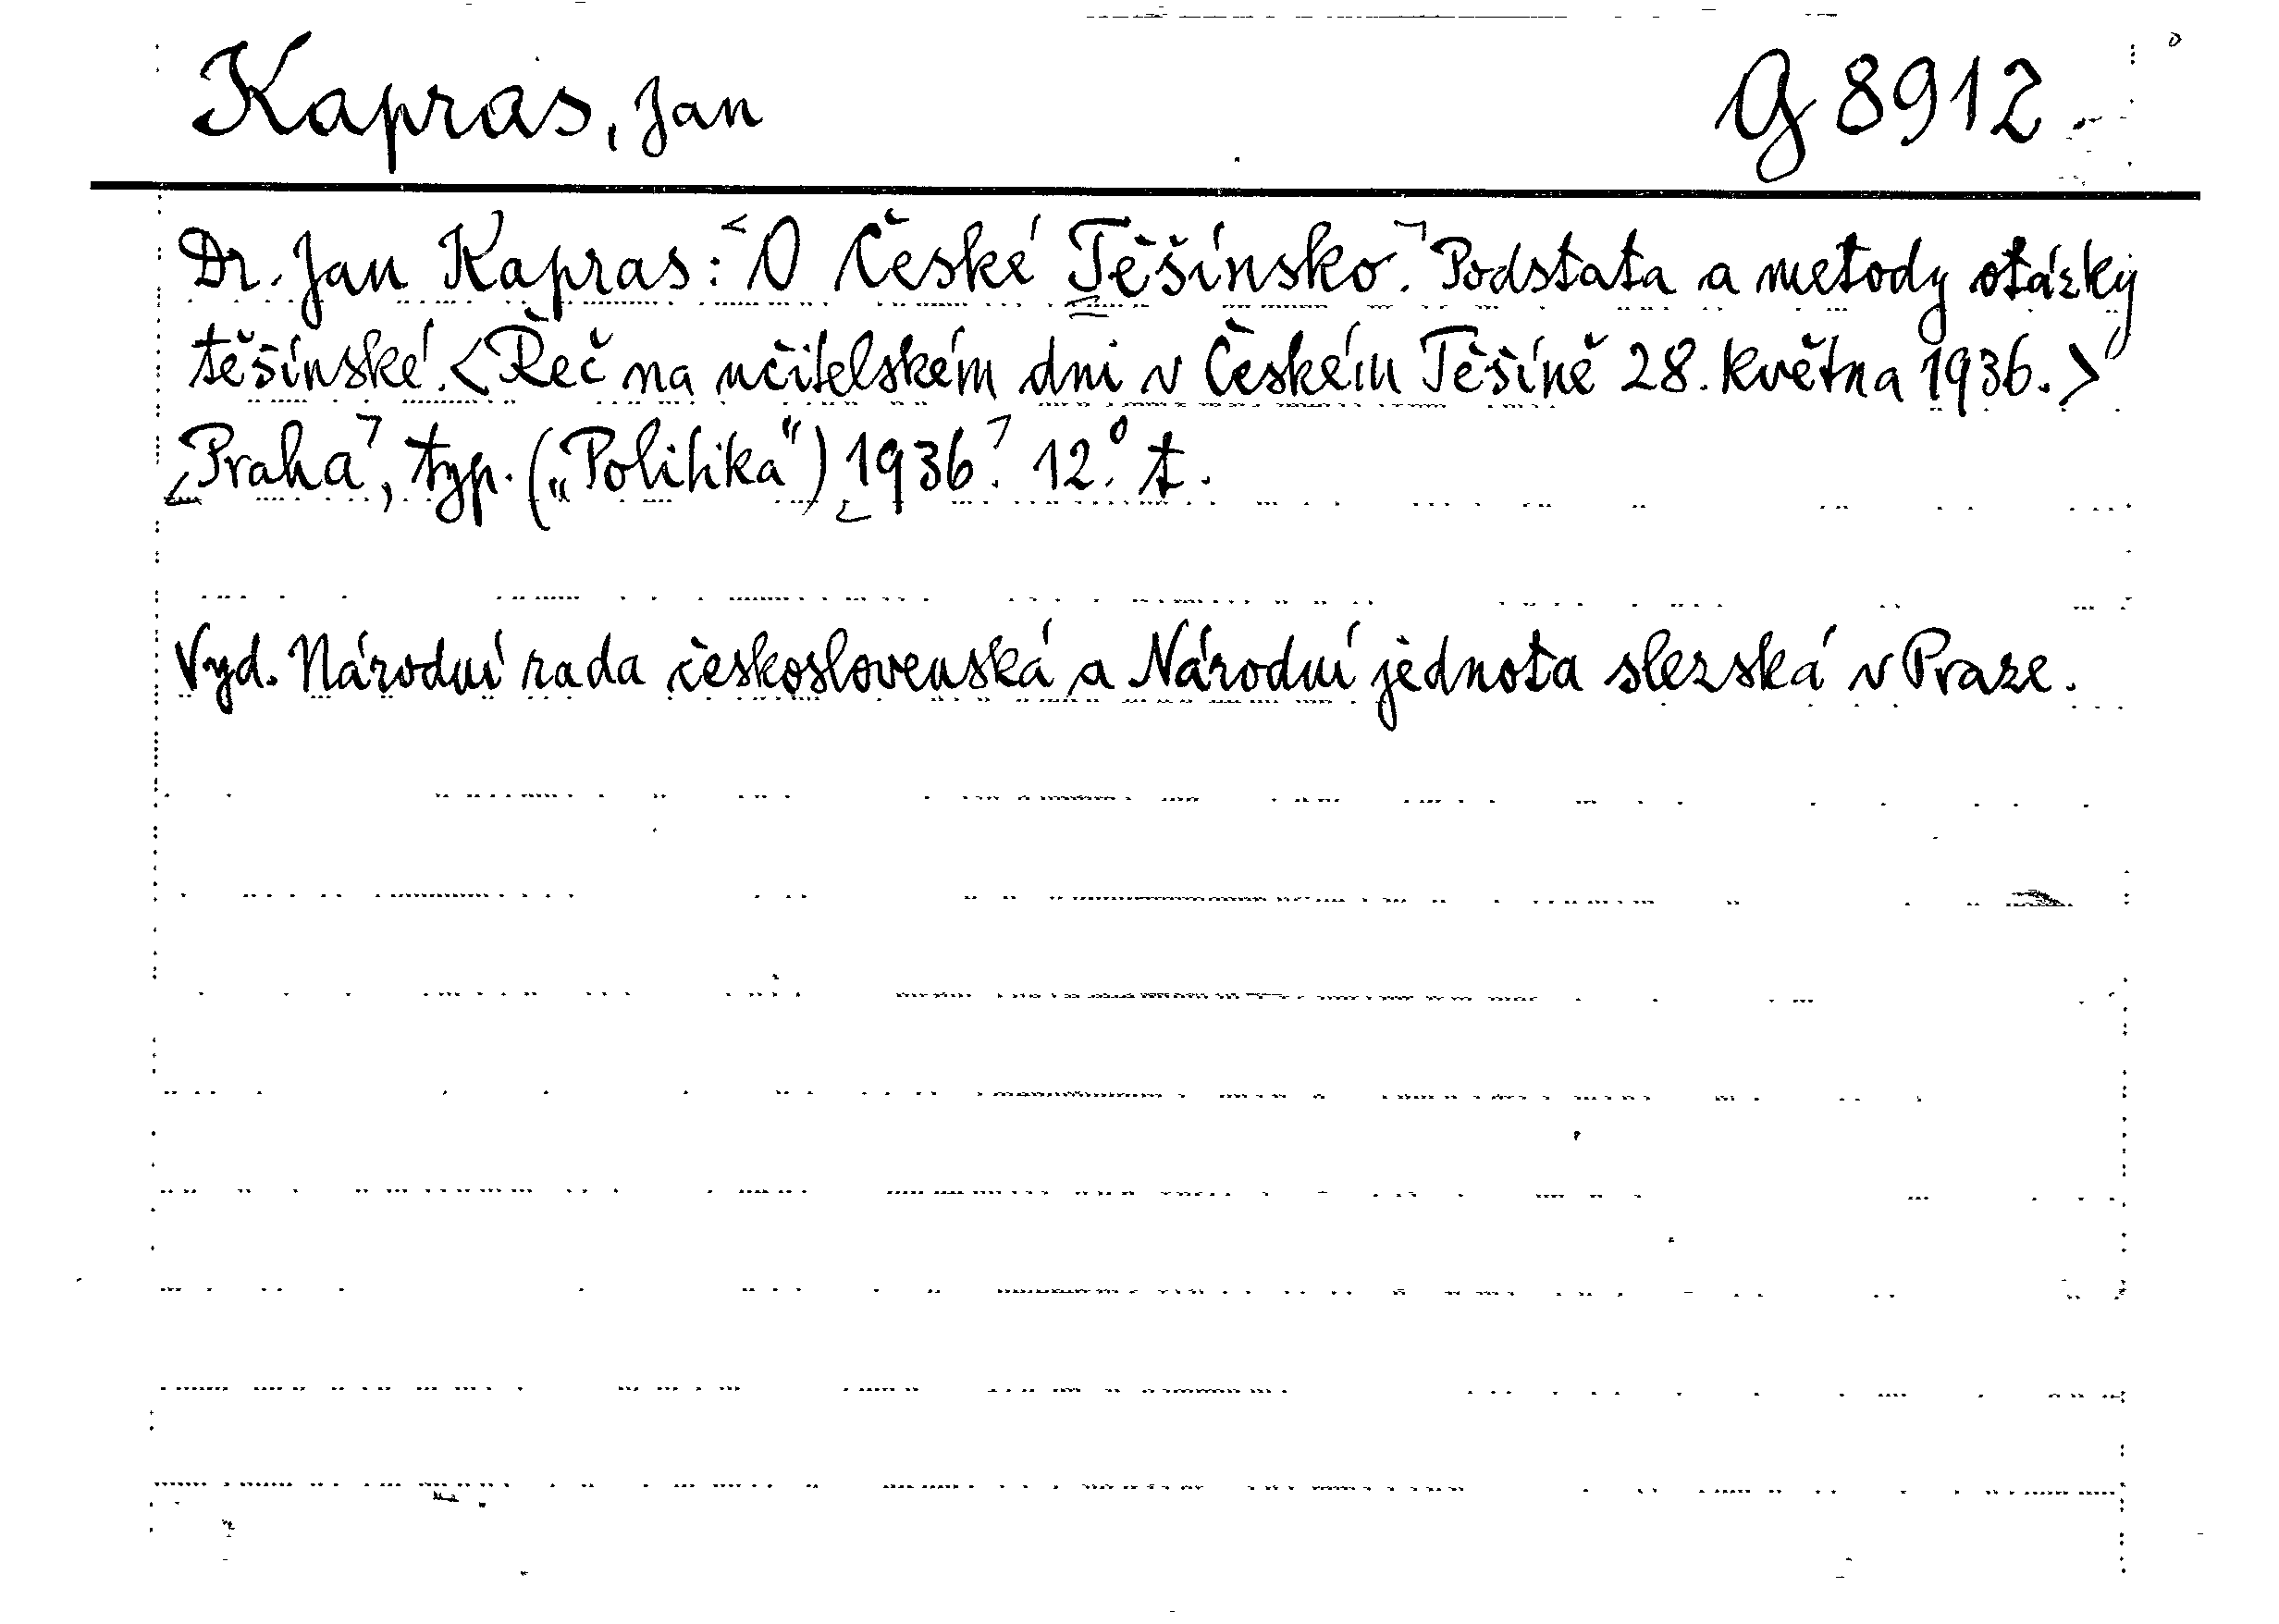 Kapras, Jan G 8912
Dr. Jan Kapras: <O České Těšínsko.> Podstata a metody otázky
těšínské. <Řeč na učitelském dni v Českém Těšíně 28. května 1936.>
<Praha>, typ. („Politika“) <1936>. 12.° t.
Vyd. Národní rada československá a Národní jednota slezská v Praze.